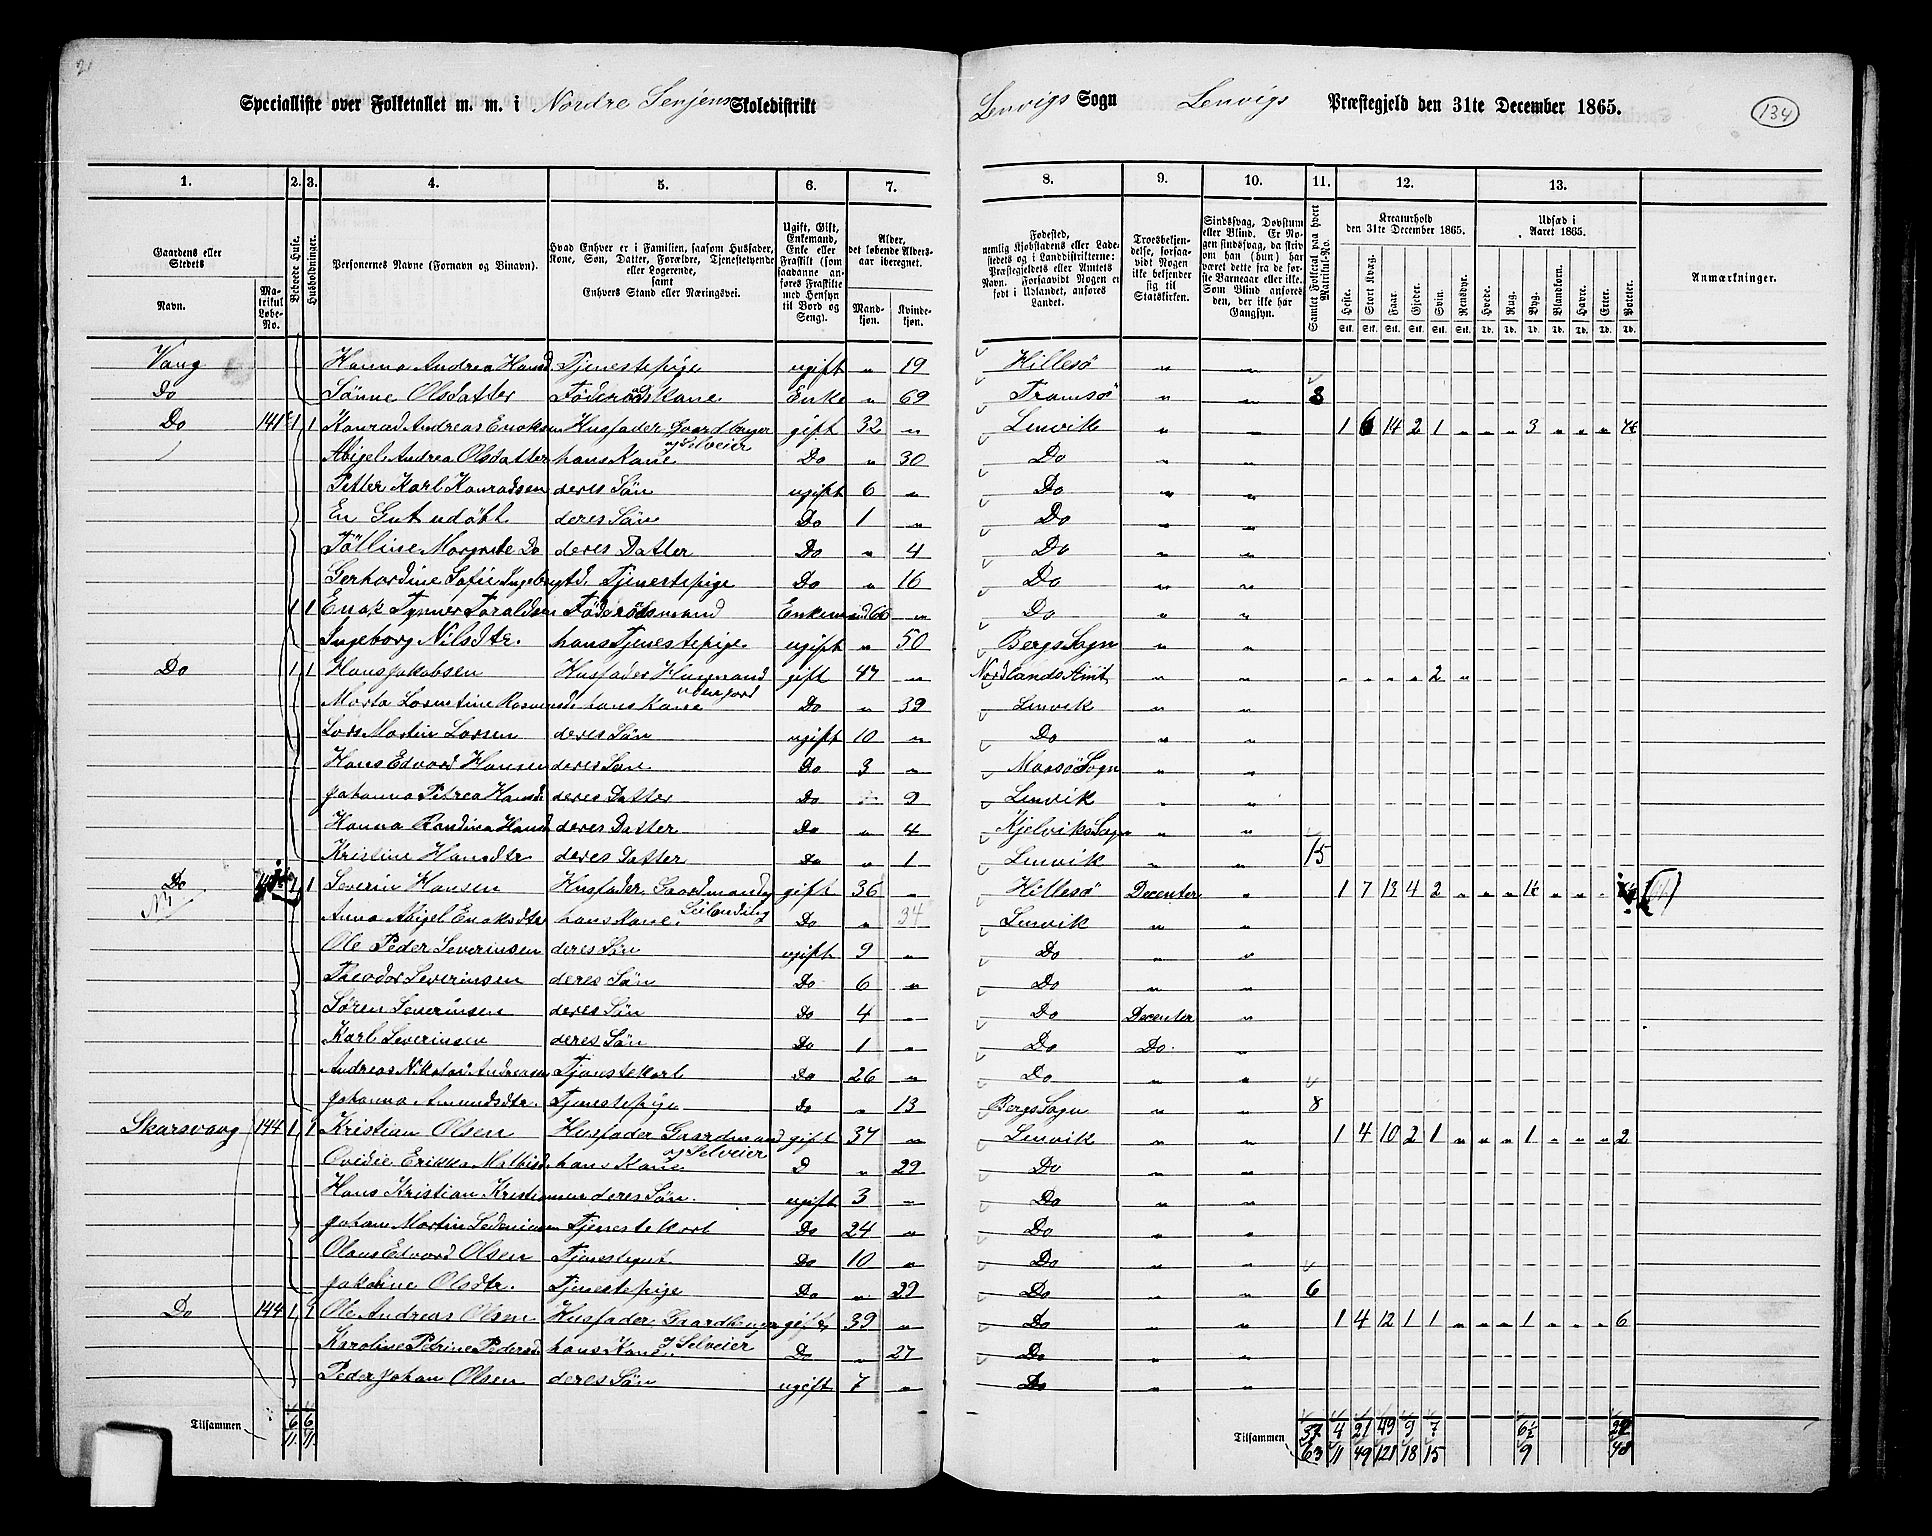 Specialliste over Folketallet m. m. i Nordre Senjens Skoledistrikt Lenvigs Sogn Lenvigs Præstegjeld den 31te December 1865. 134
1. 2. 3. 4. 5. 6. 7. 8. 9. 10. 11. 12. 13.
Gaardens eller Stedets
Navn. Matrikul Løbe-No.
Beboede Huse.
Husholdninger.
Personernes Navne (Fornavn og Binavn).
Hvad Enhver er i Familien, saasom Husfader, Kone, Søn, Datter, Forældre, Tjenestetyende eller Logerende, samt Enhvers Stand eller Næringsvei.
Ugift, Gift, Enkemand, Enke eller Fraskilt (som saadanne anføres Fraskilte med Hensyn til Bord og Seng).
Alder, det løbende Alders-aar iberegnet.
Mandkjøn. Kvindekjøn.
Fødested, nemlig Kjøbstadens eller Ladestedets og i Landdistrikterne: Præstegjeldets eller Amtets Navn. Forsaavidt Nogen er født i Udlandet, anføres Landet.
Troesbekjendelse, forsaavidt Nogen ikke bekjender sig til Statskirken.
Sindssvag, Døvstum eller Blind. Er Nogen sindssvag, da skrives om han (hun) har været dette fra de første Barneaar eller ikke. Som Blind anføres den, der ikke har Gangsyn.
Samlet Folketal paa hvert Matrikul-No.
Kreaturhold den 31te December 1865.
Heste. Stort Kvæg. Faar. Gjeder. Svin. Rensdyr.
Udsæd i Aaret 1865.
Hvede. Rug. Byg. Blandkorn. Havre. Erter. Poteter.
Anmærkninger.
Vang Hanna Andrea Hansd Tjenestepige ugift „ 19 Hillesø „ „
Do Sønne Olsdatter Føderaads Kone Enke „ 69 Tromsø „ „ 8
Do 141 1 1 Konrad Andreas Enoksen Husfader Gaardbruger gift 32 „ Lenvik „ „ 1 6 14 2 1 „ „ „ 3 „ „ „
og Selveier
Abigel Andrea Olsdatter hans Kone Do „ 30 Do „ „
Petter Karl Konradsen deres Søn ugift 6 „ Do „ „
En Gut udøbt deres Søn Do 1 „ Do „ „
Jølline Margrete Do deres Datter Do „ 4 Do „ „
Gerhardine Sofie Ingebrigtd. Tjenestepige Do „ 16 Do „ „
1 1 Enok Toraldsen Føderaadsmand Enkemand 66 „ Do „ „
Ingeborg Nilsdtr. hans Tjenestepige ugift „ 50 Bergs Sogn „ „
Do 1 1 Hans Jakobsen Husfader Husmand gift 47 „ Nordlands Amt „ „ „ „ 2 „
uden jord
Marta Lorentine hans Kone Do „ 39 Lenvik „ „
Lars Martin Larsen deres Søn ugift 10 „ Do „ „
Hans Edvard Hansen deres Søn Do 3 „ Maasø Sogn „ „
Johanna Petrea Hansd deres Datter Do 9 Lenvik „ „
Hanna Randina Hansd deres Datter Do „ 4 Kjelviks Sogn „ „
Kristine Hansdtr deres Datter Do „ 1 Lenvik „ „ 15
Do 1 1 Severin Hansen Husfader Gaardmand og gift 36 „ Hillesø Decenter „ 1 7 13 4 2 „ „ „
Leilending
Anna Abigel Enoksdtr hans Kone. Do „ 34 Lenvik „ „
Ole Peder Severinsen deres Søn ugift 9 „ Do „ „
Theodor Severinsen deres Søn Do 6 „ Do „ „
Søren Severinsen deres Søn Do 4 „ Do Decenter „
Karl Severinsen deres Søn Do 1 „ Do Do. „
Andreas Nikolai Andreasen Tjenestekarl Do 26 „ Do „ „
Johanna Amundsdtr. Tjenestepige Do „ 13 Bergs Sogn „ „ 8
Skarsvaag 144 1 1 Kristian Olsen Husfader Gaardmand gift 37 „ Lenvik „ „ 1 4 10 2 1 „ „ „ 1 „ „ „ 2
og Selveier
Ovidie Erikka Mathisd hans Kone D „ 29 Do „ „
Hans Kristian Kristiansen deres Søn. ugift 3 „ Do „ „
Johan Martin Tjenestekarl Do 24 „ Do „ „
Olaus Edvard Olsen Tjenestegut Do 10 „ Do „ „
Jakoline Olsdtr. Tjenestepige Do „ 29 Do „ „ 6
Do 144 1 1 Ole Andreas Olsen Husfader, Gaardbruger gift 39 „ Do „ „ 1 4 12 1 1 „ „ „ 1 „ „ „ 6
og Selveier
Karoline Petrine Pedersd hans Kone Do „ 27 Do „ „
Peder Johan Olsen deres Søn ugift 7 „ Do „ „
Tilsammen 6 6 Tilsammen 37 4 21 49 9 7 6½
11. 11. 63 11 49 121 18 15 9 48